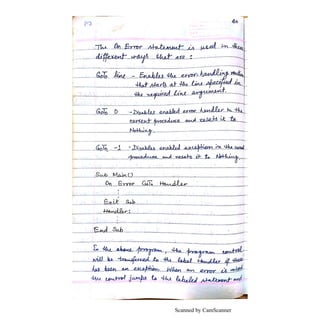 The On Error statement is used in three
different ways that are :
GoTo line - Enables the error handling routine
that starts at the line specified in
the required line argument.
GoTo 0 - Disables enabled error handler in the
current procedure and resets it to
Nothing.
GoTo -1 - Disables enabled exception in the current
procedure and resets it to Nothing.
Sub Main()
On Error GoTo Handler
:
Exit Sub
Handler:
:
End Sub
In the above program, the program control
will be transferred to the label Handler if there
has been an exception. When an error is
the control jumps to the labeled statement and
Scanned by CamScanner